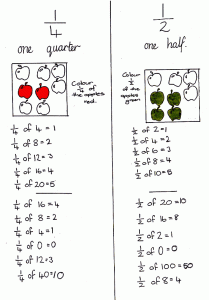 1/4
one quarter
Colour 1/4 of the apples red.
1/4 of 4 = 1
1/4 of 8 = 2
1/4 of 12 = 3
1/4 of 16 = 4
1/4 of 20 = 5
1/4 of 16 = 4
1/4 of 8 = 2
1/4 of 4 = 1
1/4 of 0 = 0
1/4 of 12 = 3
1/4 of 40 = 10
1/2
one half.
Colour 1/2 of the apples green
1/2 of 2 = 1
1/2 of 4 = 2
1/2 of 6 = 3
1/2 of 8 = 4
1/2 of 10 = 5
1/2 of 20 = 10
1/2 of 16 = 8
1/2 of 2 = 1
1/2 of 0 = 0
1/2 of 100 = 50
1/2 of 8 = 4